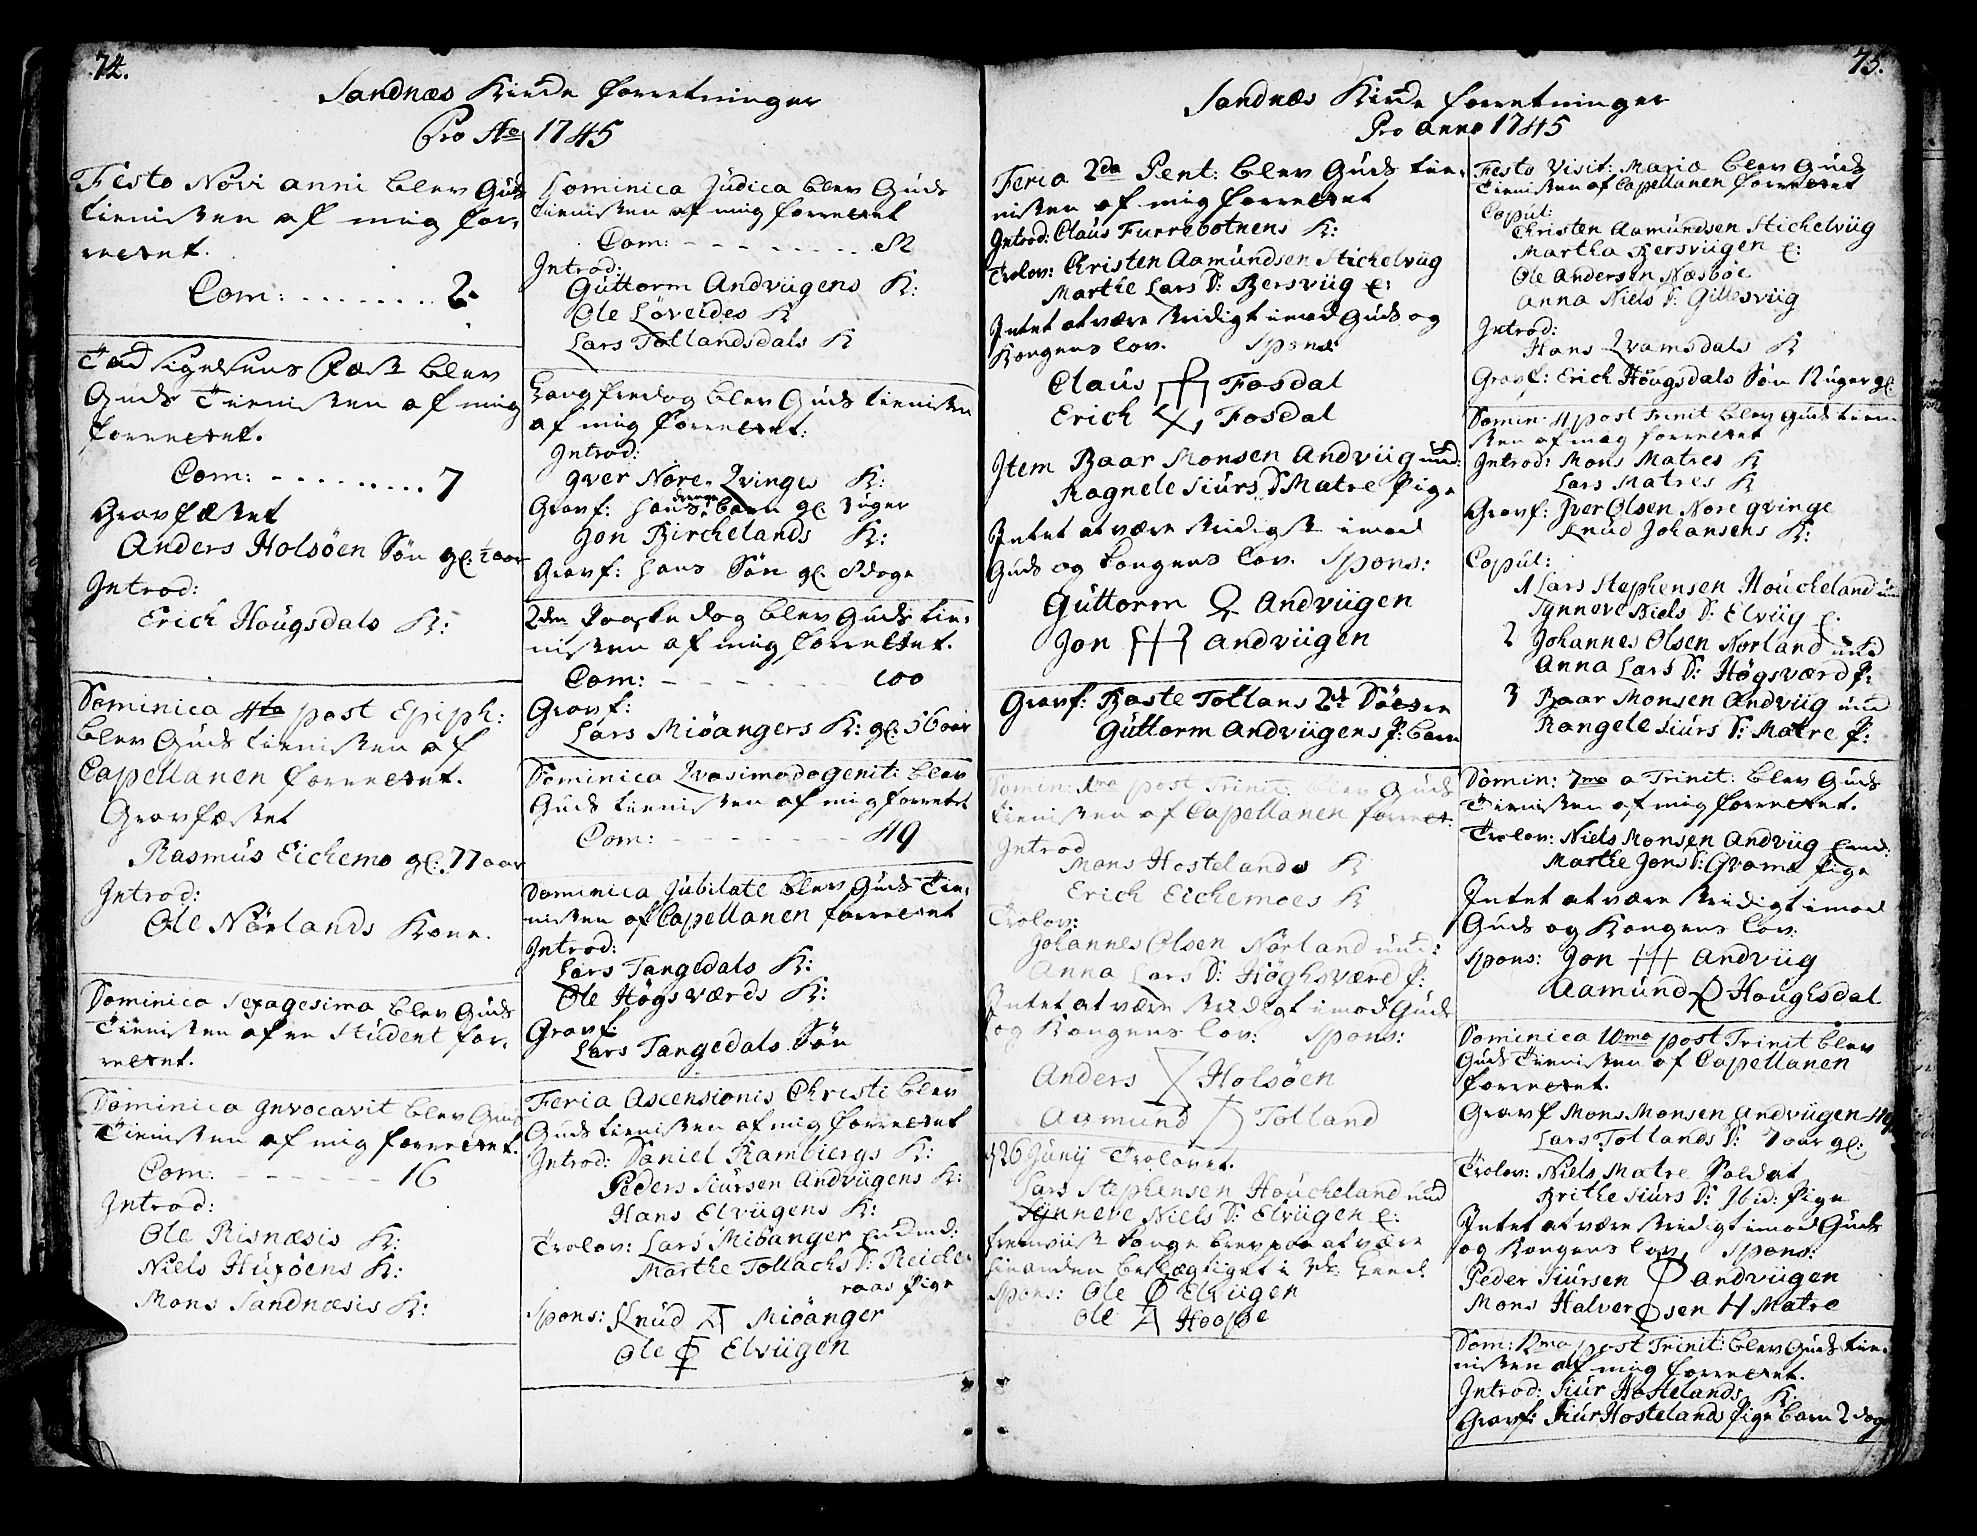 74.
Sandnæs Kirke forretninger
Pro Ao 1745
Festo Novi anni blev Guds
tienisten af mig for-
rettet.
Com: . . . . . . . . 2.
Guds Tienisten af mig
forrettet.
Com: - . . . . . . . . 7
Gravfæstet
Anders Holsöen Sön gl: ½ aar
Introd:
Erich Hougsdals K:
Dominica 4ta post Epiph:
blev Guds tienisten af
Capellanen forrettet.
Gravfæstet
Rasmus Eichemo gl: 77 aar
Introd:
Ole Nörlands Kone.
Dominica Sexagesima blev Guds
Tienisten af en Student for-
rettet.
Dominica Invocavit blev Guds
Tienisten af mig forrettet.
Com: - - - - - - - 16
Introd:
Ole Risnæsis K:
Niels Huxöens K:
Mons Sandnæsis K:
Dominica Judica blev Guds
tienisten af mig forrettet
Com: - - - - - - - - 82
Introd:
Guttorm Andviigens K:
Ole Löveides K
Lars Totlandsdals K
Langfredag blev Guds tienisten
af mig forrettet.
Introd:
Iver Nore Qvinges K:
Gravf: Hans drenge barn gl. 3 uger
Jon Birchelands K:
Gravf: Hans Sön gl. 8 dage
2den Paaske dag blev Guds tie-
nisten af mig forrettet.
Com: - - - - - - - 100
Gravf:
Lars Miöangers K: gl: 56 aar
Dominica Qvasimodogenit: blev
Guds tienisten af mig forrettet
Com: - - - - - - - - 49
Dominica Jubilate blev Guds Tie-
nisten af Capellanen forrettet
Introd:
Lars Tangedals K:
Ole Högsværds K:
Gravf:
Lars Tangedals Sön
Feria Ascensionis Christi blev
Guds tienisten af mig forrettet
Introd: Daniel Rambiergs K:
Peders Siursen Andviigens K:
Hans Elviigens K:
Trolov: Lars Miöanger
Marthe Tollachs D: Reiche-
raas Pige
Spons: Knud Miöanger
Ole Elviigen
75.
Sandnæs Kirke forretninger
Pro anno 1745
Feria 2da Pent: blev Guds tie-
nisten af mig forrettet
Introd: Claus Furrebotnens K:
Trolov: Christen Aamundsen Stichelviig
Marthe Lars D: Bersviig E:
Intet at være stridigt imod Guds og
Kongens lov. Spons:
Claus Fosdal
Erich Fosdal
Item Baar Monsen Andviig und:
Ragnele Siurs D Matre Pige
Intet at være stridigt imod
Guds og Kongens lov. Spons:
Guttorm Andviigen
Jon Andviigen
Gravf: Baste Totlans
Guttorm Andviigens P: barn
Domin: 1ma post Trinit: blev Guds
tienisten af Capellanen forrett:
Introd
Mons Hostelands K
Erich Eichemoes K
Trolov:
Johannes Olsen Nörland und:
Anna Lars D: Höghsværd P:
Intet at være stridigt imod Guds
og Kongens lov: Spons:
Anders Holsöen
Aamund Totland
26 Junij Trolovet.
Lars Stephensen Houcheland und
Synneve Niels D: Elviigen E:
fremviiste Konge brev paa at være
hinanden beslægtiget i led.
Spons: Ole Elviigen
Ole Hoope
Festo Visit: Mariæ blev Guds
Tienisten af Capellanen forrettet
Copul:
Christen Aamundsen Stichelviig
Martha Bersviigen E:
Ole Andersen Næsböe
Anna Niels D: Gillesviig
Introd:
Hans Qvamsdals K
Gravf: Erich Höugsdals Sön 12 uger gl.
Domin: 4 post Trinit blev Guds tien-
sten af mig forrettet
Introd: Mons Matres K
Lars Matres K
Gravf: Iver Olsen Nore qvinge
Knud Johansens K:
Copul:
1 Lars Stephensen Houcheland und
Synneve Niels D: Elviig E:
2 Johannes Olsen Norland und
Anna Lars D: Högsværd P:
3 Baar Monsen Andviig und
Rangele Siurs D: Matre P:
Domin: 7ma a Trinit: blev Guds
Tienisten af mig forrettet.
Trolov: Niels Monsen Andviig
Marthe Jons D: Qvame Pige
Intet at være stridigt imod
Guds og Kongens lov.
Spons: Jon Andviig
Aamund Houghsdal
Dominica 10ma post Trinit blev
Guds Tienisten af Capellanen
forrettet.
Gravf Mons Monsen Andviigen
Lars Totlands D: 7 aar gl:
Trolov: Niels Matre Soldat
Brithe Siurs D: Ibid: Pige
Intet at være stridigt imod Guds
og Kongens lov, Spons:
Peder Siursen Andviigen
Mons Halversen Matre
Dom: 12ma post Trinit: blev Guds tie-
nisten af mig forrettet.
Introd: Siur Hostelands K.
Gravf: Siur Hostelands Pige barn 2 dage